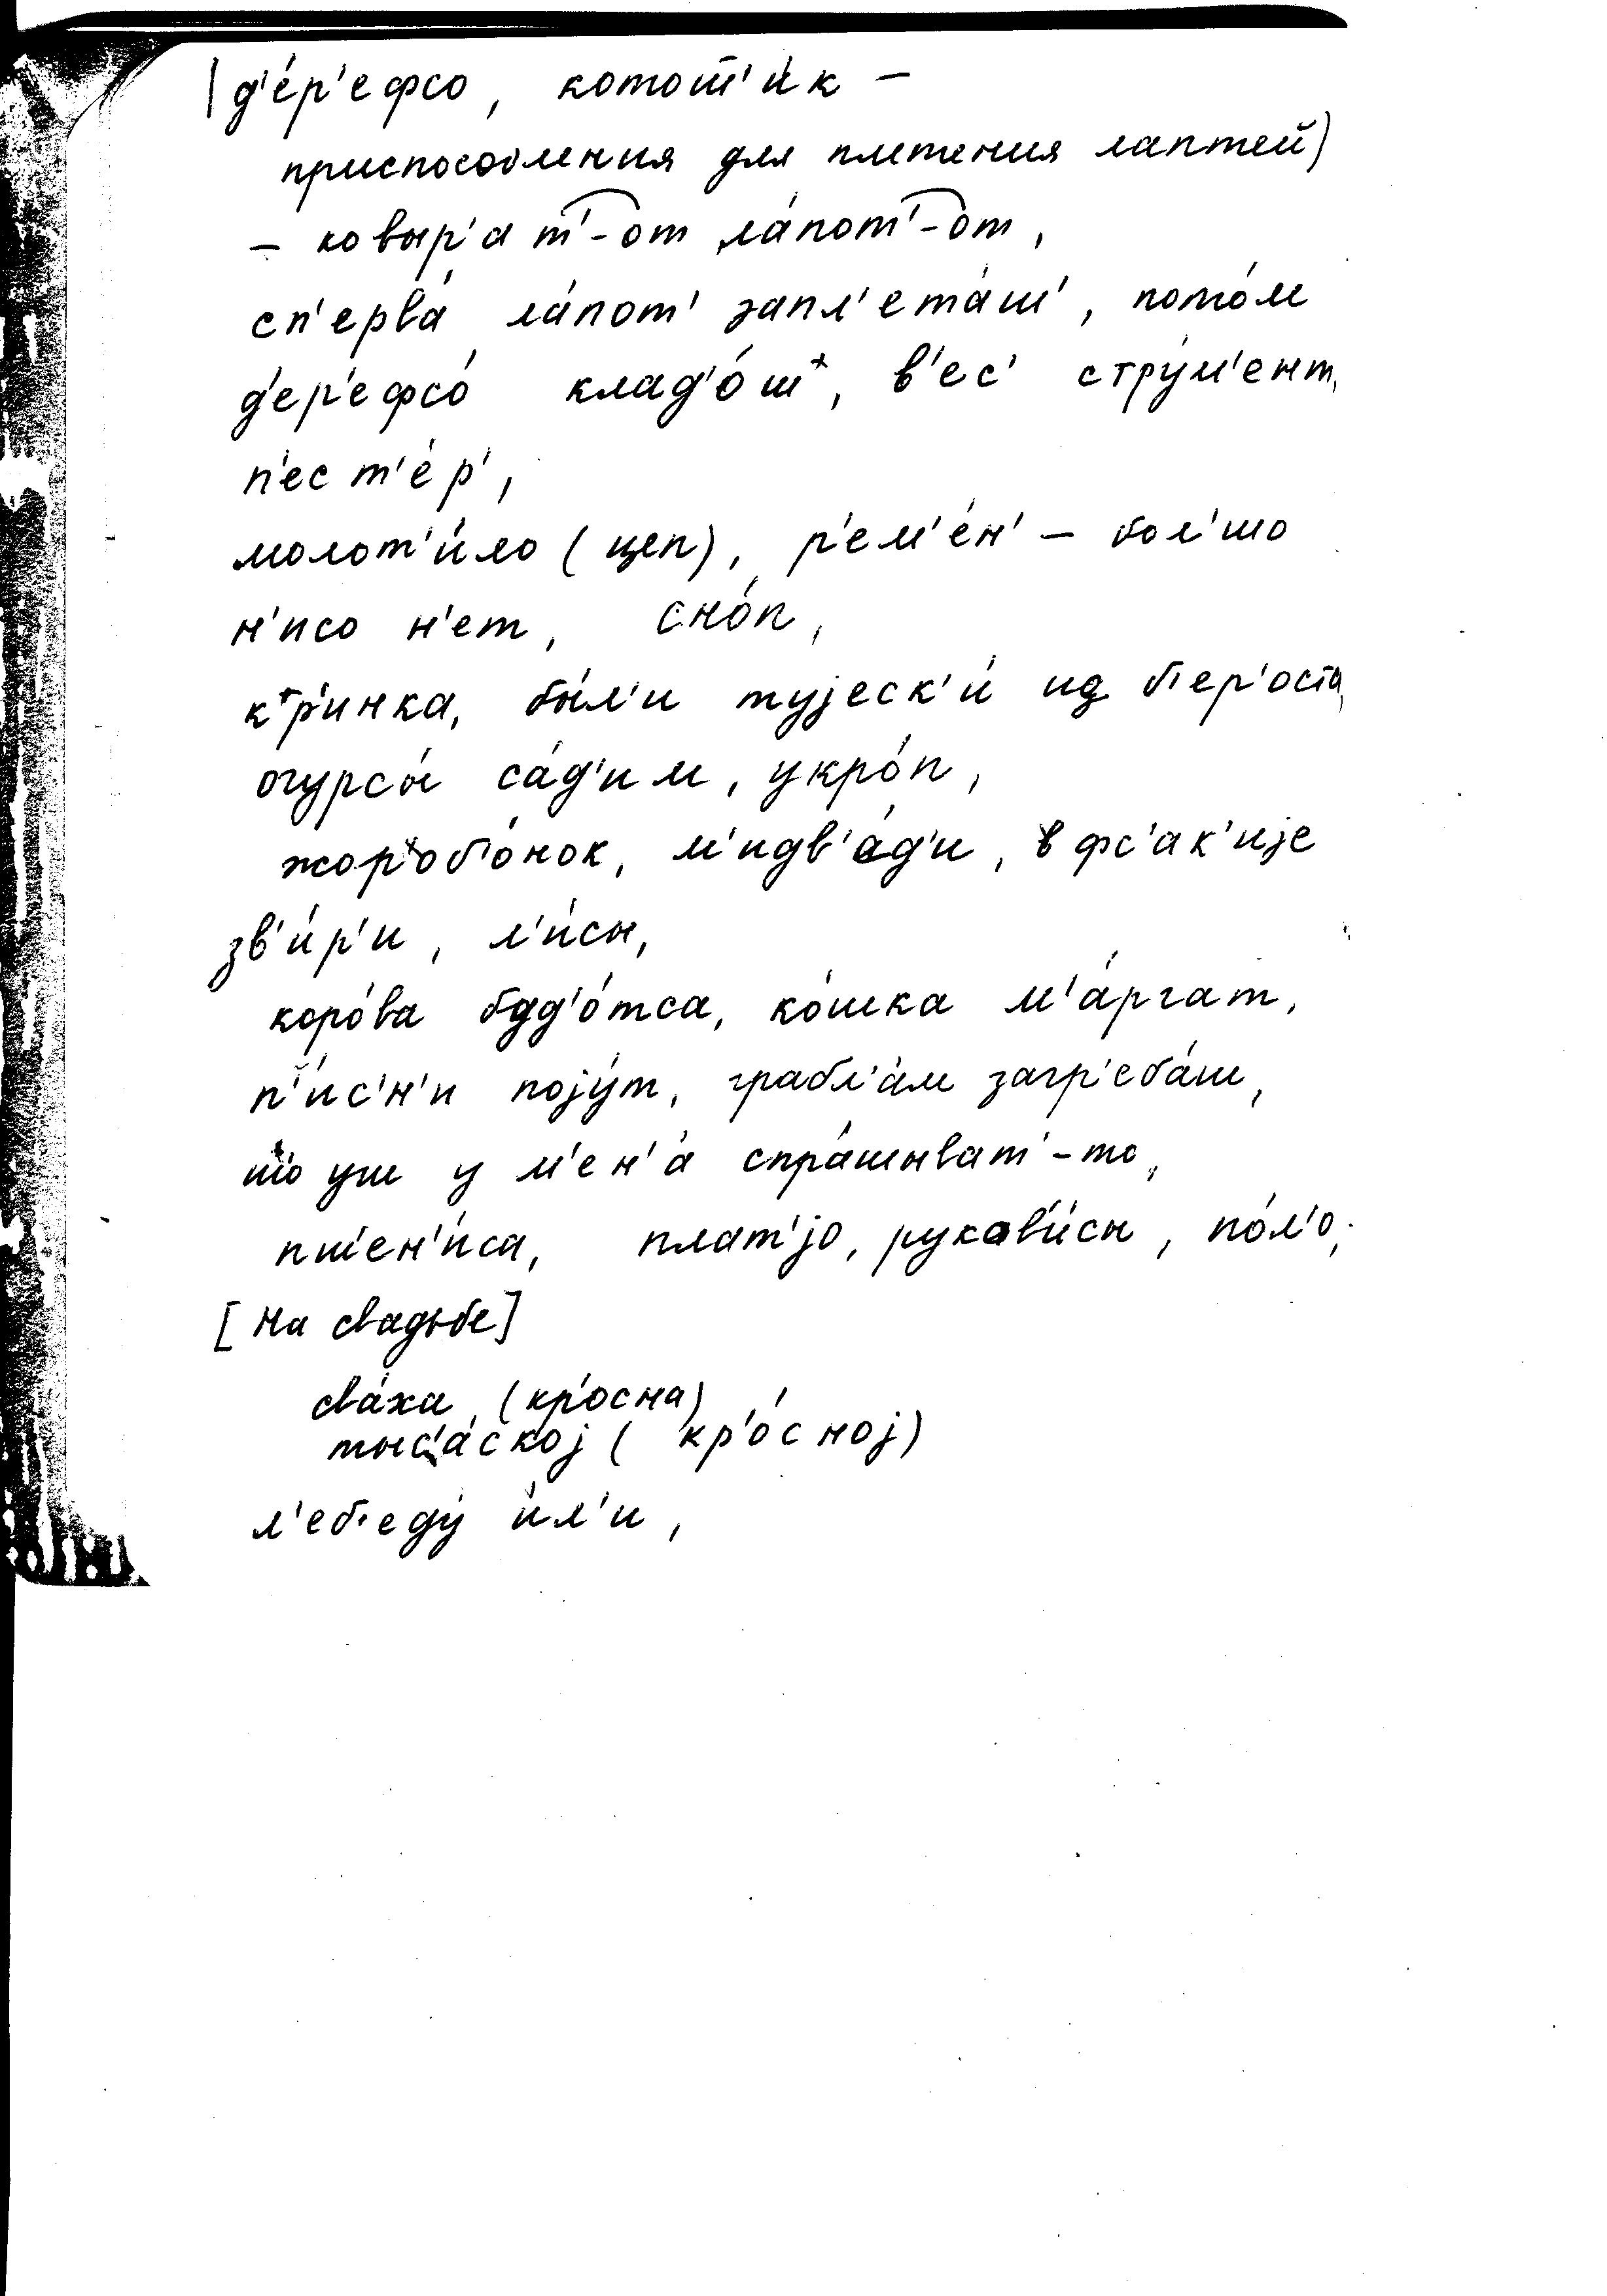 (д'е́р'ефсо, котот'и́к –
приспособления для плетения лаптей)
– ковыр'а т'-от ла́пот'-от,
сп'ерва́ ла́пот' запл'ета́ш', пото́м
д'ер'ефсо́ клад'о́ш+, в'ес' стру́м'ент,
п'ест'е́р',
молот'и́ло (цеп), р'ем'е́н' – бол'шо
н'исо н'ет, сно́п,
к+р'инка, бы́л'и тујеск'и́ из б'ер'оста,
огурсы́ са́д'им, укро́п,
жор'об'о́нок, м'идв'а́д'и, в фс'ак'ије
зв'и́р'и, л'и́сы,
коро́ва бдд'о́тса, ко́шка м'а́ргат,
п'и́с'н'и појут, грабл'а́м загр'еба́ш,
што уш у м'ен'а́ спра́шыват'-то,
пшен'и́са, плат'јо, рукав'и́сы, по́л'о,
[На свадьбе]
сва́ха (кр'осна)
тыс'а́с'кој (кр'о́сној)
л'еб'еду́ и́л'и,